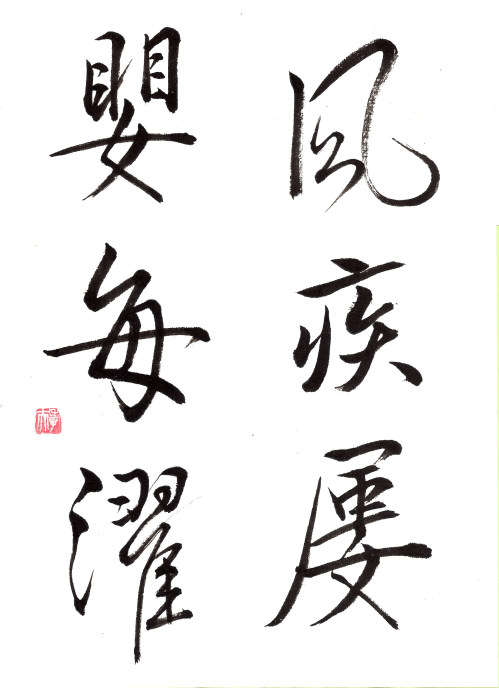 風疾屢
嬰毎濯